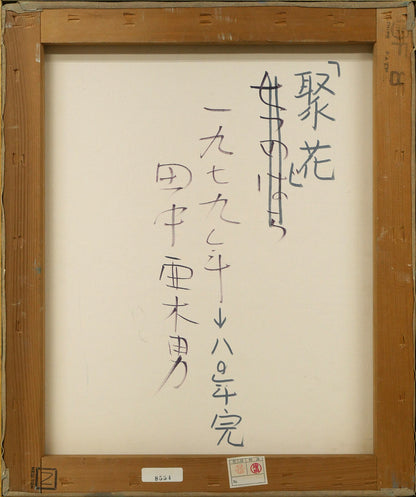 「聚花」
七つのばら
一九七九年→八〇年完
田中亜木男
8554